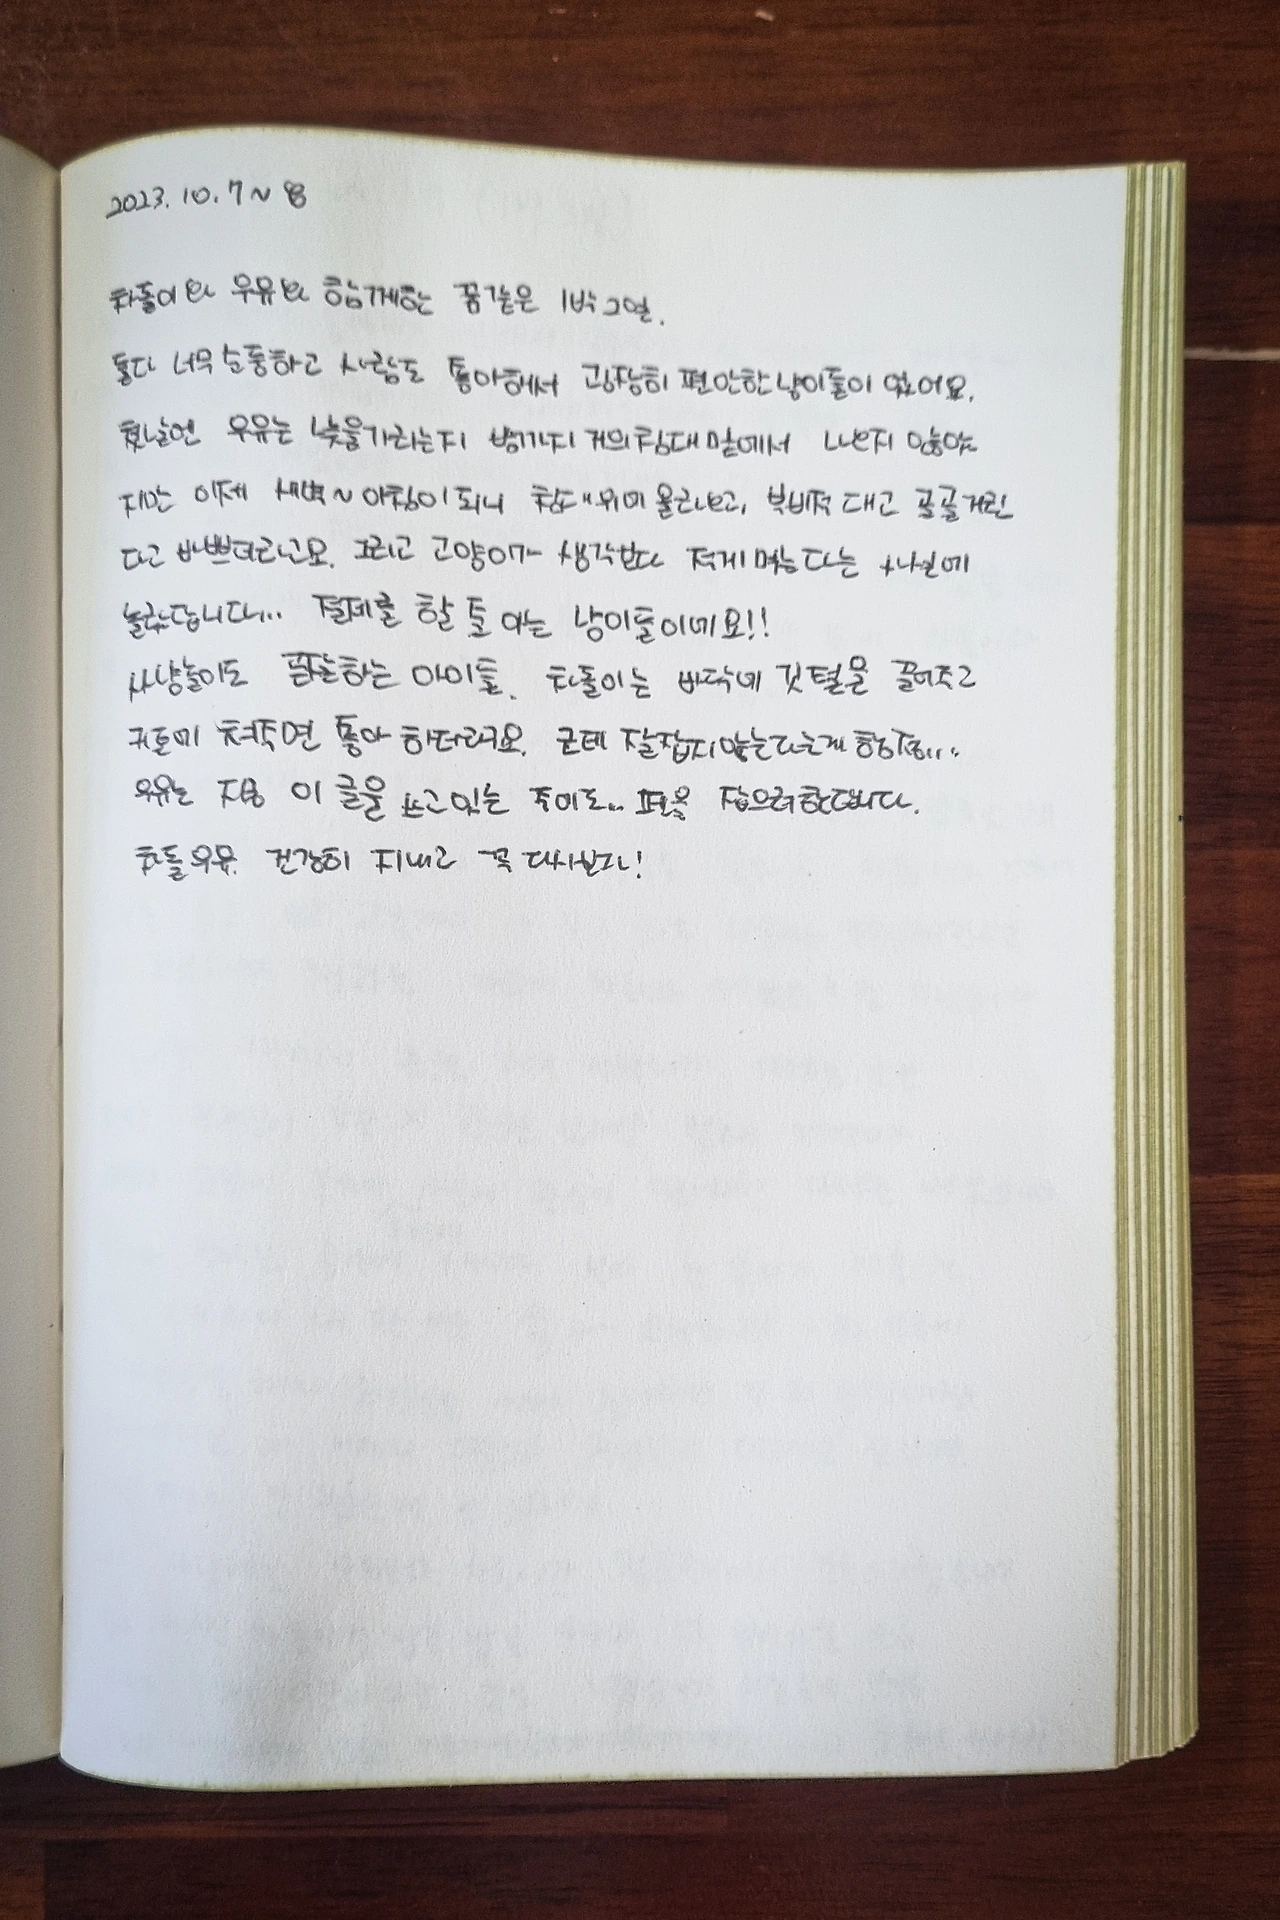 2023. 10. 7 ~ 8
차돌이와 우유와 함께하는 꿈같은 1박 2일.
둘다 너무 소통하고 사람도 좋아해서 굉장히 편안한 냥이들이 었어요.
첫날엔 우유는 낯을가리는지 밤까지 거의 침대 밑에서 나오지 않았
지만 이제 새벽 ~ 아침이 되니 침대 위에 올라오고, 부비적 대고 골골거린
다고 바쁘더라고요. 그리고 고양이가 생각보다 적게 먹는다는 사실에
놀랐답니다... 절제를 할 줄 아는 냥이들이네요!!
사냥놀이도 잘하는 아이들. 차돌이는 바닥에 깃털을 끌어주고
귀로미 쳐주면 좋아 하더라구요. 근데 잘 잡지않는다는게 함정...
우유는 지금 이 글을 쓰고있는 중에도.. 펜을 잡으려한답니다.
차돌 우유. 건강히 지내고 꼭 다시보자!